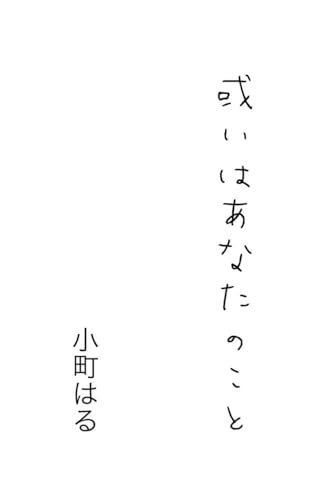 或いはあなたのこと
小町はる